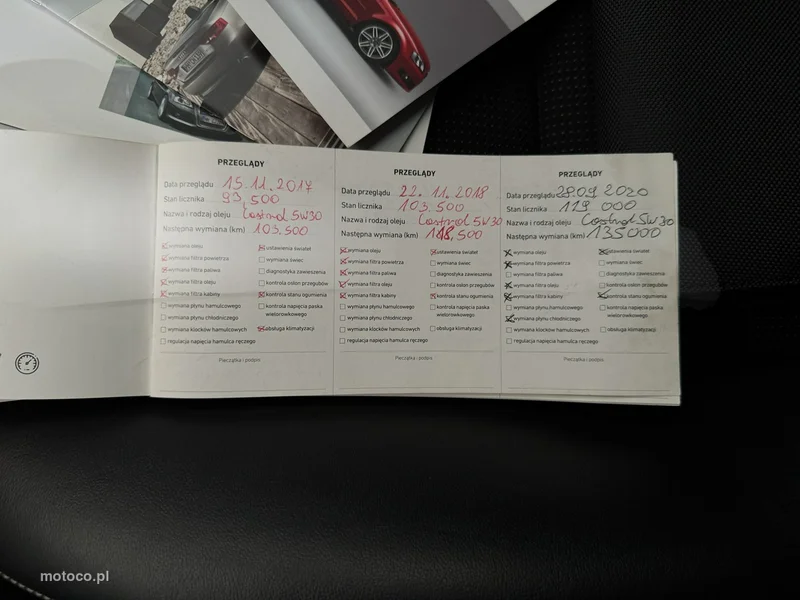 PRZEGLĄDY
Data przeglądu 15.11.2017
Stan licznika 93,500
Nazwa i rodzaj oleju Castrol 5W30
Następna wymiana (km) 103,500
wymiana oleju
wymiana filtra powietrza
wymiana filtra paliwa
wymiana filtra oleju
wymiana filtra kabiny
wymiana płynu hamulcowego
wymiana płynu chłodniczego
wymiana klocków hamulcowych
regulacja napięcia hamulca ręcznego
ustawienia świateł
wymiana świec
diagnostyka zawieszenia
kontrola osłon przegubów
kontrola stanu ogumienia
kontrola napięcia paska
wielorowkowego
obsługa klimatyzacji
Pieczątka i podpis
PRZEGLĄDY
Data przeglądu 22.11.2018
Stan licznika 103,500
Nazwa i rodzaj oleju Castrol 5W30
Następna wymiana (km) 118,500
wymiana oleju
wymiana filtra powietrza
wymiana filtra paliwa
wymiana filtra oleju
wymiana filtra kabiny
wymiana płynu hamulcowego
wymiana płynu chłodniczego
wymiana klocków hamulcowych
regulacja napięcia hamulca ręcznego
ustawienia świateł
wymiana świec
diagnostyka zawieszenia
kontrola osłon przegubów
kontrola stanu ogumienia
kontrola napięcia paska
wielorowkowego
obsługa klimatyzacji
Pieczątka i podpis
PRZEGLĄDY
Data przeglądu 28.09.2020
Stan licznika 119 000
Nazwa i rodzaj oleju Castrol 5W30
Następna wymiana (km) 135000
wymiana oleju
wymiana filtra powietrza
wymiana filtra paliwa
wymiana filtra oleju
wymiana filtra kabiny
wymiana płynu hamulcowego
wymiana płynu chłodniczego
wymiana klocków hamulcowych
regulacja napięcia hamulca ręcznego
ustawienia świateł
wymiana świec
diagnostyka zawieszenia
kontrola osłon przegubów
kontrola stanu ogumienia
kontrola napięcia paska
wielorowkowego
obsługa klimatyzacji
Pieczątka i podpis
motoco.pl